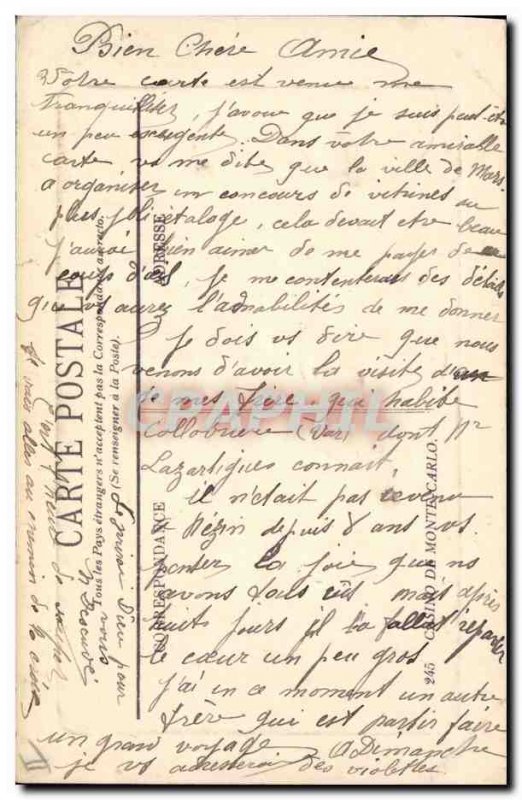 Bien Chère Amie
Votre carte est venue me
tranquilliser, j'avoue que je suis peut-etr
un peu exigente. Dans votre aimable
carte vs me dite que la ville de Mars.
a organiser un concours de vitrines au
plus joli etalage, cela devait etre beau
j'aurai bien aimer de me payer de
coup d'œil, je me contenterais des détails
que vs aurez l'amabilités de me donner
Je dois vs dire que nous
venons d'avoir la visite d'un
de mes frère qui habite
Collobrière (Var) dont Mr
Lazartigues connait,
il n'était pas revenu
a Mézin depuis 8 ans vs
penser la joie que ns
avons tous eus mais après
huit jours il la fallut repartir
le cœur un peu gros
J'ai in ce moment un autre
frère qui est partir faire
un grand voyage. A Dimanche
je vs adresserai des violettes.
Et vais aller au chemin de la
CARTE POSTALE
Tous les Pays étrangers n'acceptent pas la Correspondance au recto.
(Se renseigner à la Poste).
CORRESPONDANCE
ADRESSE
245 CASINO DE MONTE-CARLO.
pour
vous
CPHRC.com